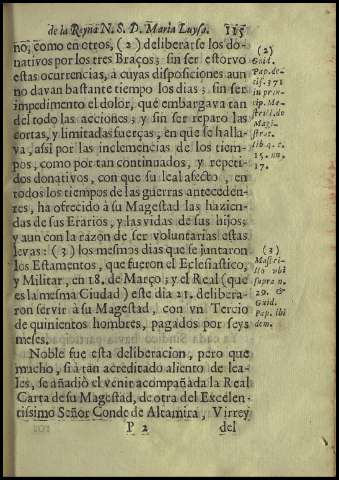 de la Reyna N. S. D. Maria Luysa. 115
no, como en otros, (2) deliberarse los do-
nativos por los tres Braços; sin ser estorvo
estas ocurrencias, à cuyas disposiciones aun
no davan bastante tiempo los dias; sin ser
impedimento el dolor, que embargava tan
del todo las acciones; y sin ser reparo las
cortas, y limitadas fuerças, en que se halla-
va, assi por las inclemencias de los tiem-
pos, como por tan continuados, y repeti-
dos donativos, con que su leal afecto, en
todos los tiempos de las guerras anteceden-
res, ha ofrecido à su Magestad las hazien-
das de sus Erarios, y las vidas de sus hijos;
y aun con la razon de ser voluntarias estas
levas: (3) los mesmos dias que se juntaron
los Estamentos, que fueron el Eclesiastico,
y Militar, en 18. de Março; y el Real (que
es la mesma Ciudad) este dia 21. delibera-
ron servir à su Magestad, con vn Tercio
de quinientos hombres, pagados por seys
meses.
Noble fue esta deliberacion, pero que
mucho, si à tan acreditado aliento de lea-
les, se añadiò el venir acompañada la Real
Carta de su Magestad, de otra del Excelen-
tissimo Señor Conde de Altamira, Virrey
P 2 del
(2)
Guid.
Pap. de-
cis. 371
in prin-
cip. Ma-
stril. de
Magi-
strat.
lib. 4. c.
15. nu.
17.
(3)
Mastri-
llo vbi
supra n.
29. &
Guid.
Pap. ibi
dem.